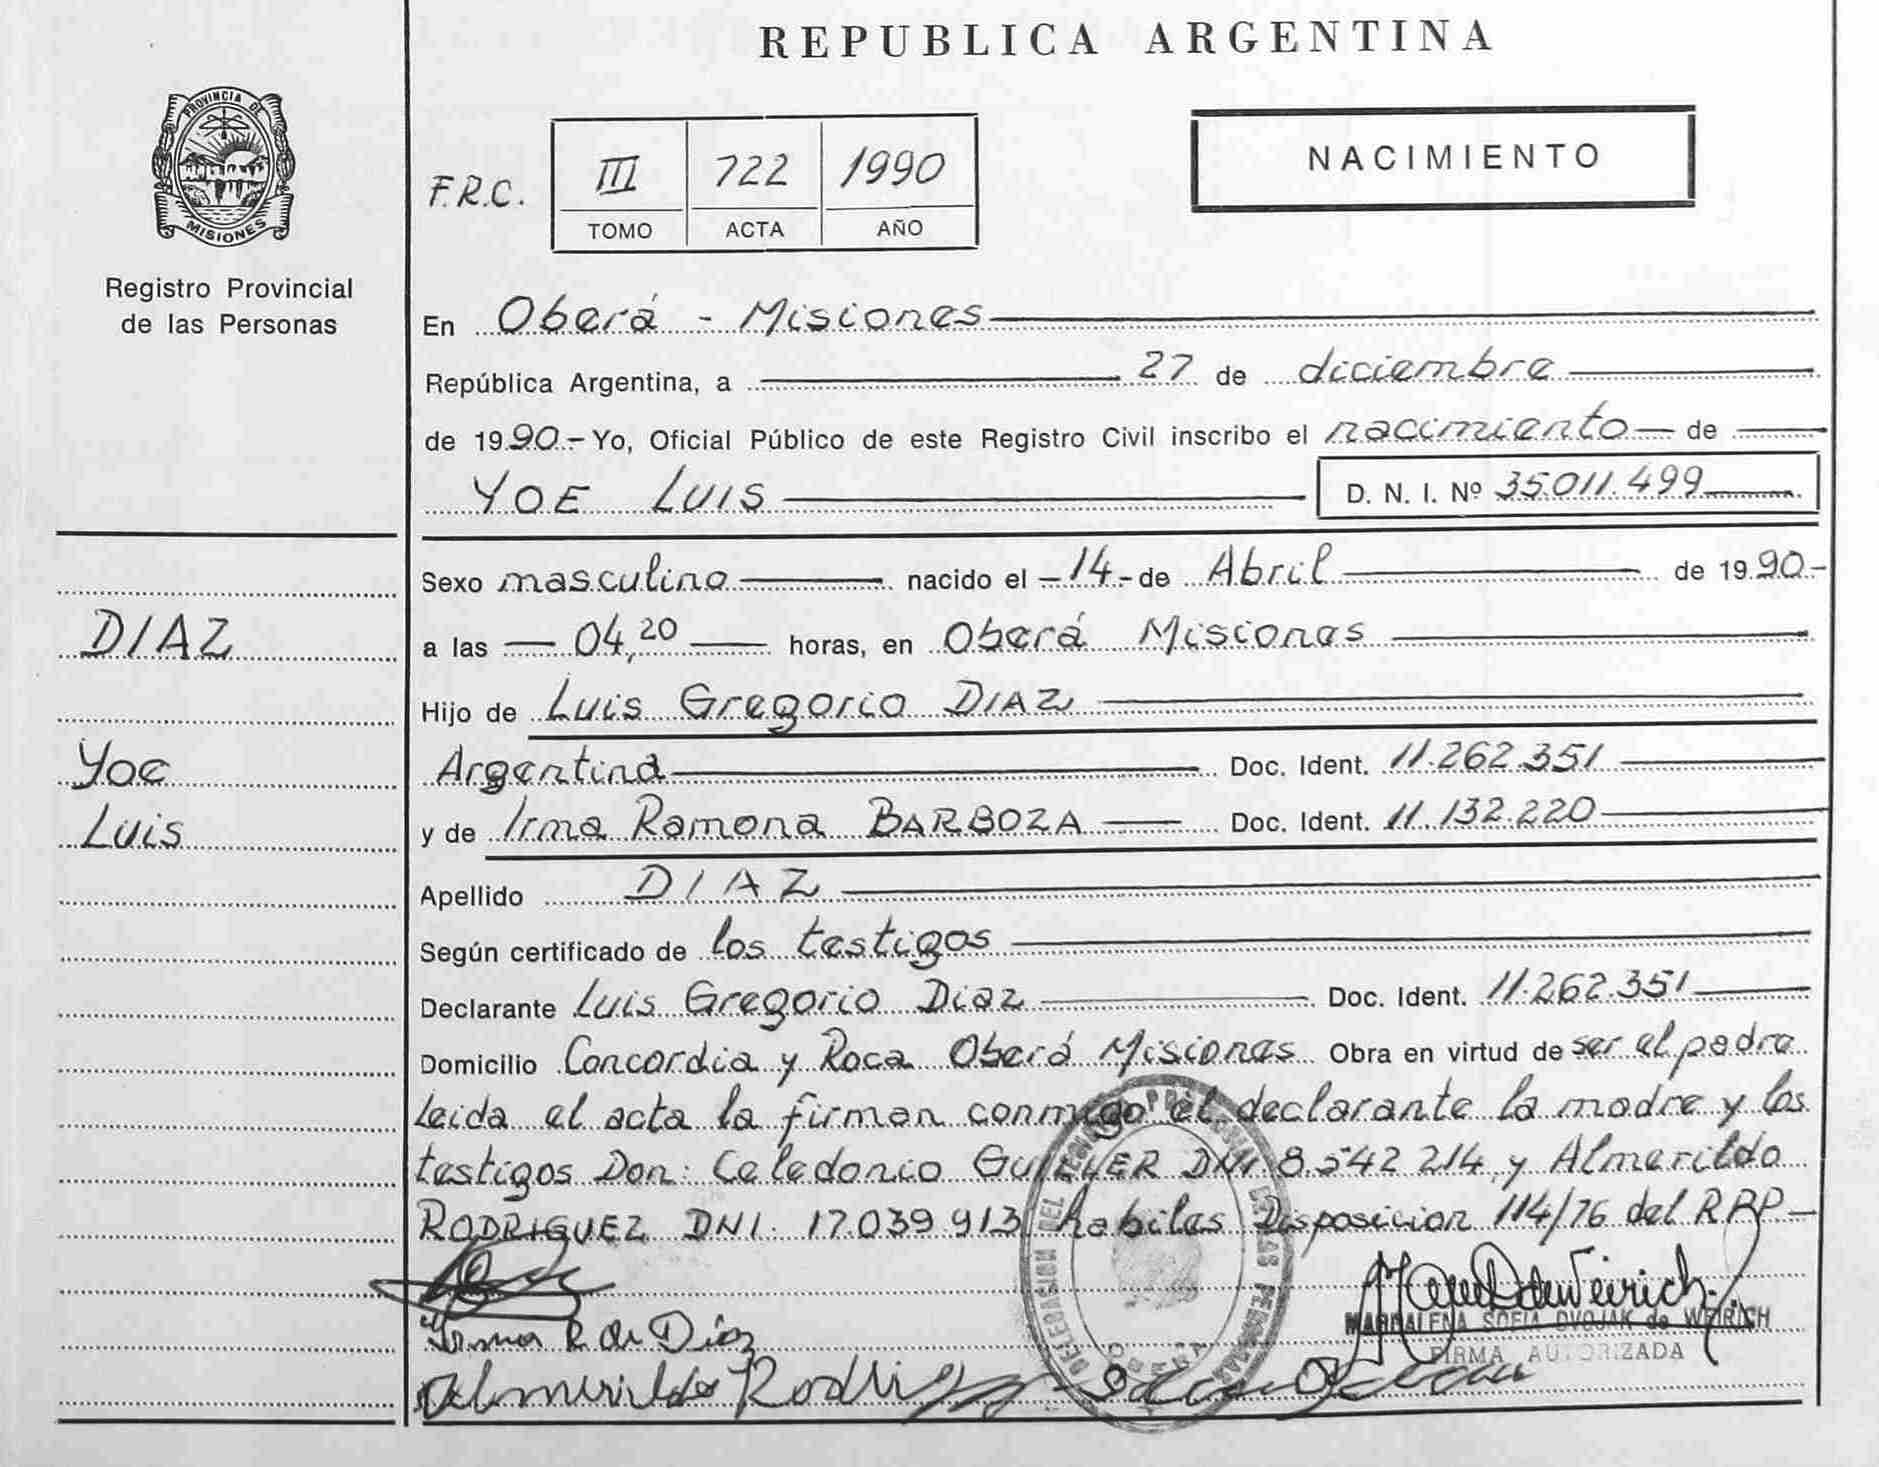 REPUBLICA ARGENTINA
PROVINCIA DE
MISIONES
Registro Provincial
de las Personas
F.R.C.
III 722 1990
TOMO ACTA AÑO
NACIMIENTO
En Oberá - Misiones
República Argentina, a 27 de diciembre
de 1990.- Yo, Oficial Público de este Registro Civil inscribo el nacimiento de
YOE LUIS D. N. I. Nº 35.011.499
Sexo masculino nacido el -14- de Abril de 1990.-
a las 04,20 horas, en Oberá Misiones
Hijo de Luis Gregorio DIAZ
Argentina Doc. Ident. 11.262.351
y de Irma Ramona BARBOZA Doc. Ident. 11.132.220
Apellido DIAZ
Según certificado de los testigos
Declarante Luis Gregorio Diaz Doc. Ident. 11.262.351
Domicilio Concordia y Roca Oberá Misiones Obra en virtud de ser el padre
Leida el acta la firman conmigo el declarante la madre y los
testigos Don: Celedonio DNI. 8.542 214 y Almerildo
RODRIGUEZ DNI. 17.039 913 habiles Disposicion 114/76 del RPP
DIAZ
Yoe
Luis
Irma R de Díaz
Almerildo
MAGDALENA SOFIA DVOJAK de WEIRICH
FIRMA AUTORIZADA
DELEGASION DEL